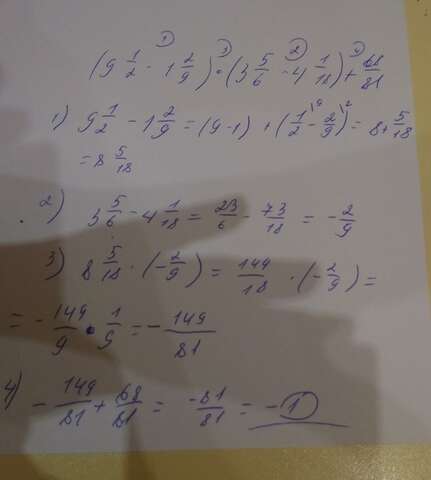 ① ③ ② ④
(9 1/2 - 1 2/9) · (3 5/6 - 4 1/18) + 68/81
1) 9 1/2 - 1 2/9 = (9-1) + (1/2 \9 - 2/9 \2) = 8 + 5/18
= 8 5/18
2) 3 5/6 - 4 1/18 = 23/6 - 73/18 = - 2/9
3) 8 5/18 · (- 2/9) = 149/18 · (- 2/9) =
= - 149/9 · 1/9 = - 149/81
4) - 149/81 + 68/81 = -81/81 = -1